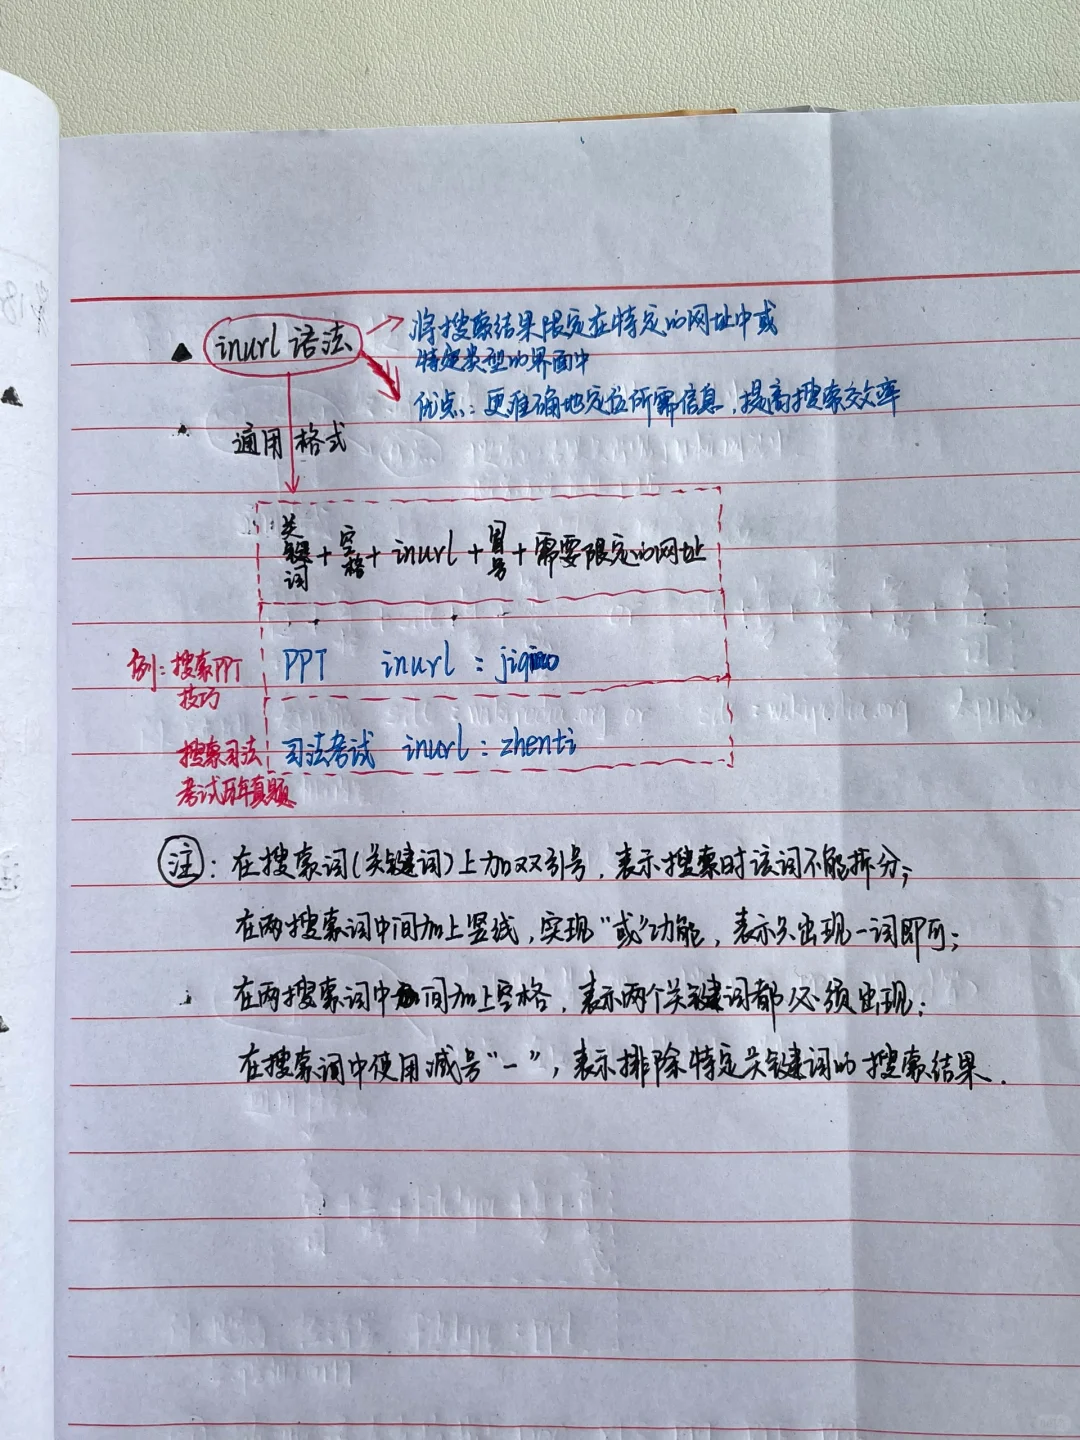 inurl 语法
将搜索结果限定在特定的网址中或
特定类型的界面中
优点：更准确地定位所需信息，提高搜索效率
通用格式
关键词+空格+inurl+冒号+需要限定的网址
例：搜索PPT
技巧
PPT inurl：jiqiao
搜索司法
考试历年真题
司法考试 inurl：zhenti
注：在搜索词(关键词)上加双引号，表示搜索时该词不能拆分；
在两搜索词中间加上竖线，实现“或”功能，表示只出现一词即可；
在两搜索词中间加上空格，表示两个关键词都必须出现；
在搜索词中使用减号“-”，表示排除特定关键词的搜索结果．